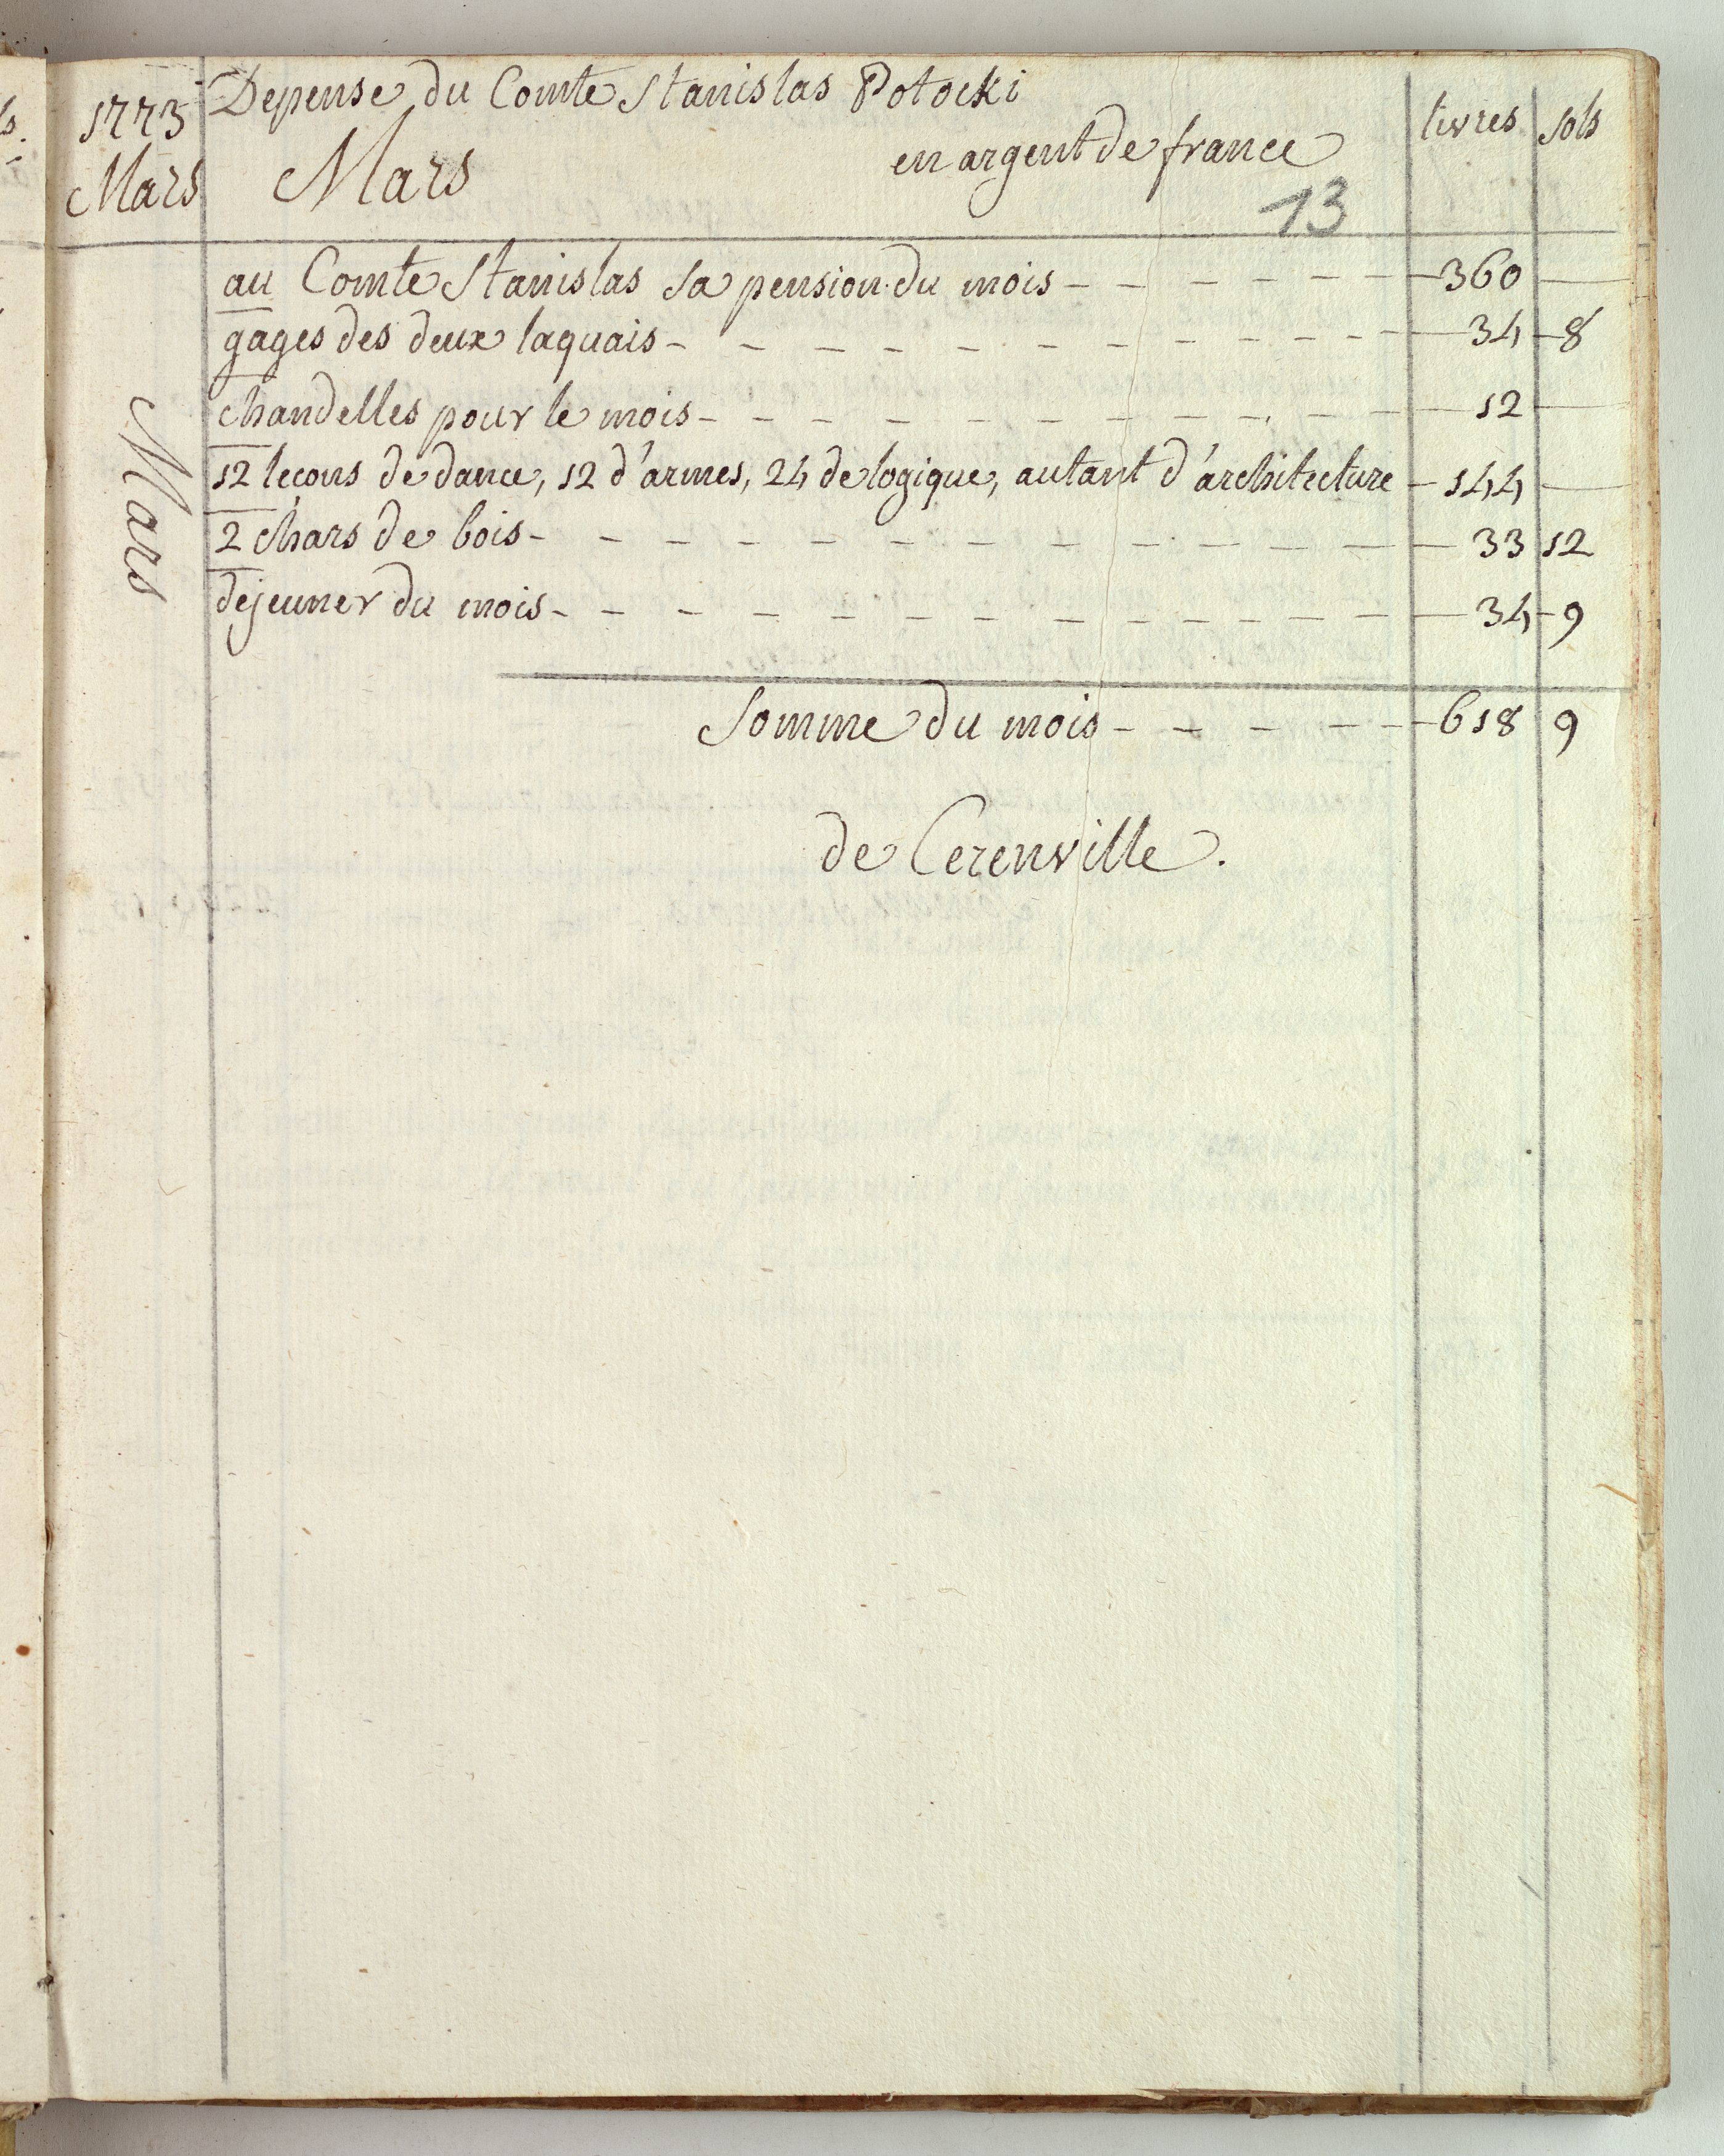 1773
Mars
Depense du Comte Stanislas Potocki
Mars
en argent de france
livres sols
13
au Comte Stanislas sa pension du mois - - - - - - 360
gages des deux laquais - - - - - - - - - - - 34 - 8
chandelles pour le mois - - - - - - - - - - 12
12 leçons de dance, 12 d'armes, 24 de logique, autant d'architecture - 144
2 chars de bois - - - - - - - - - - - - - 33 12
dejeuner du mois - - - - - - - - - - - - - 34 - 9
Mars
Somme du mois - - - - - 618 9
de Cerenville.